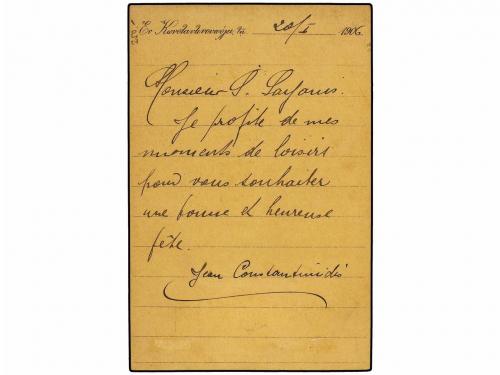 Ἐν Κωνσταντινουπόλει, τῇ 20/I 1906
Monsieur S.
Je profite de mes
moments de loisirs
pour vous souhaiter
une bonne et heureuse
fête.
Jean Constantinidis